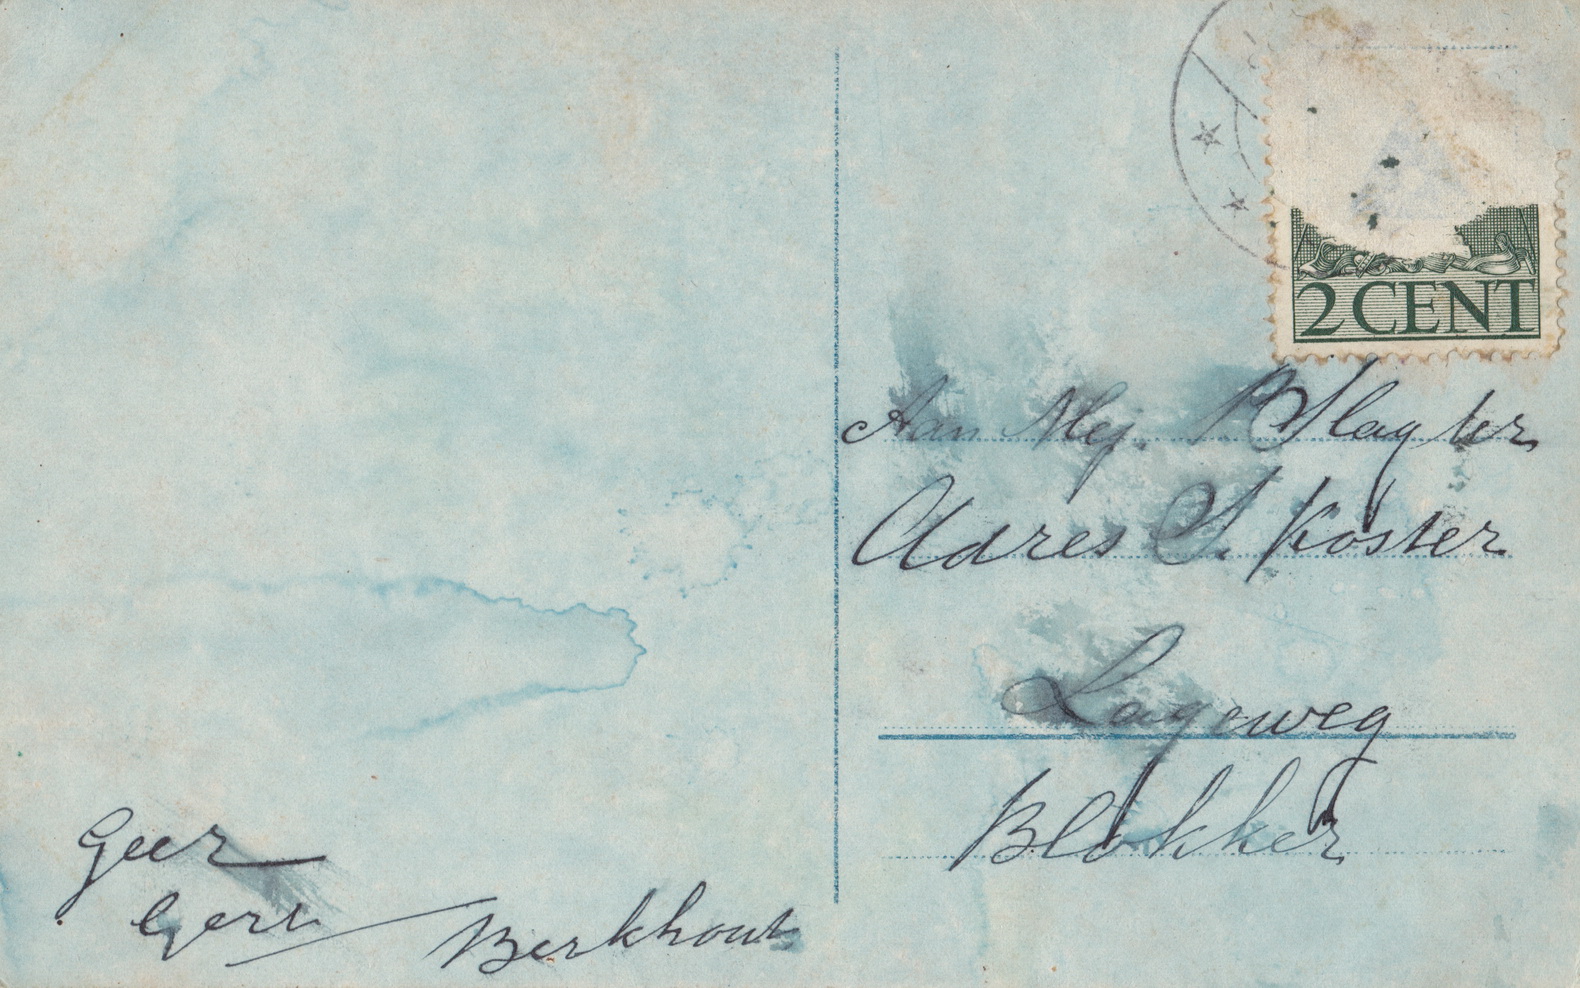 2 CENT
Aan Mej. B Slagter
Adres S. Koster
Lageweg
Blokker
Geer
Gert
Berkhout